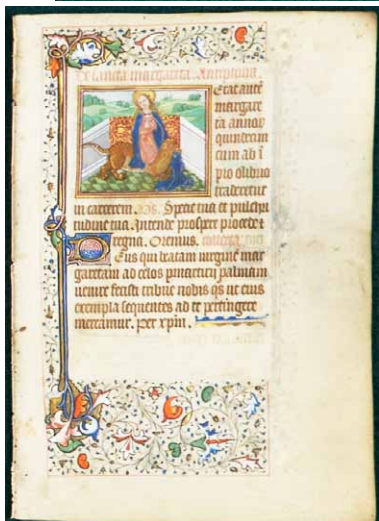 De sancta margareta. Antiphona.
Erat autē
margare
ta annoꝝ
quindecim
cum ab ī
pio olibrio
traderetur
in carcerem. Specie tua et pulchri
tudine tua. Intende prospere procede ⁊
regna. Oremus.
Deus qui beatam virginē mar
garetam ad celos
venire fecisti tribue nobis qs̄ ut eius
exempla sequentes ad te pertingere
mereamur. per xp̄m.